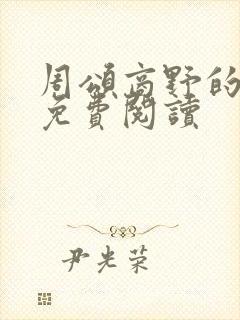 周頌高野的
免費閱讀
尹光荣